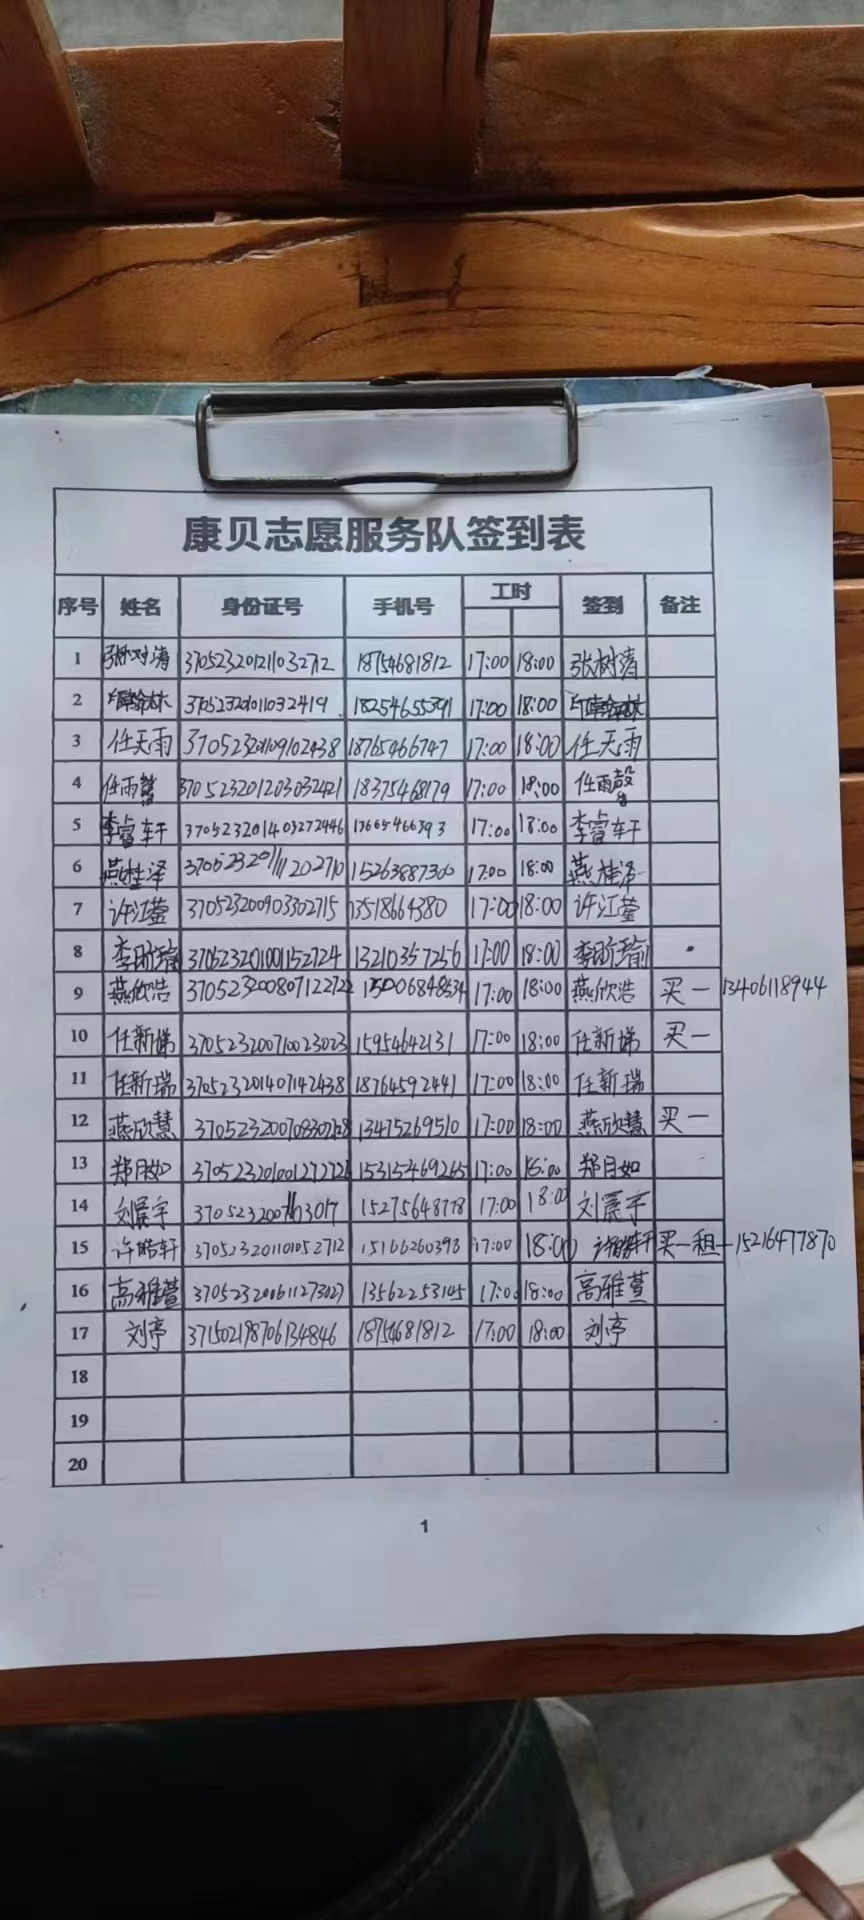 康贝志愿服务队签到表
序号 姓名 身份证号 手机号 工时 签到 备注
1 张树清 18754681812 17:00 18:00 张树清
2 370523201011032419 18254655391 17:00 18:00
3 任天雨 370523201109102438 18765466747 17:00 18:00 任天雨
4 任雨 370523201203032421 18375468179 17:00 18:00 任雨
5 李睿轩 370523201403272446 17:00 18:00 李睿轩
6 燕桂泽 15263887300 17:00 18:00 燕桂泽
7 许江蓥 370523200903302715 13518664380 17:00 18:00 许江蓥
8 李昕瑜 370523201001152724 13210357256 17:00 18:00 李昕瑜
9 燕欣浩 370523200807122722 15006848534 17:00 18:00 燕欣浩 买一 13406118944
10 任新娣 370523200710023023 15954642131 17:00 18:00 任新娣 买一
11 任新瑞 370523201407142438 18764592441 17:00 18:00 任新瑞
12 燕欣慧 13475269510 17:00 18:00 燕欣慧 买一
13 郑月如 370523201001272726 15315469265 17:00 18:00 郑月如
14 刘宸宇 15275648778 17:00 18:00 刘宸宇
15 许皓轩 370523201101052712 15166260393 17:00 18:00 许皓轩 买一租一 15216477870
16 高雅萱 370523200611273027 13562253105 17:00 18:00 高雅萱
17 刘亭 371502198706134846 18754681812 17:00 18:00 刘亭
18
19
20
1